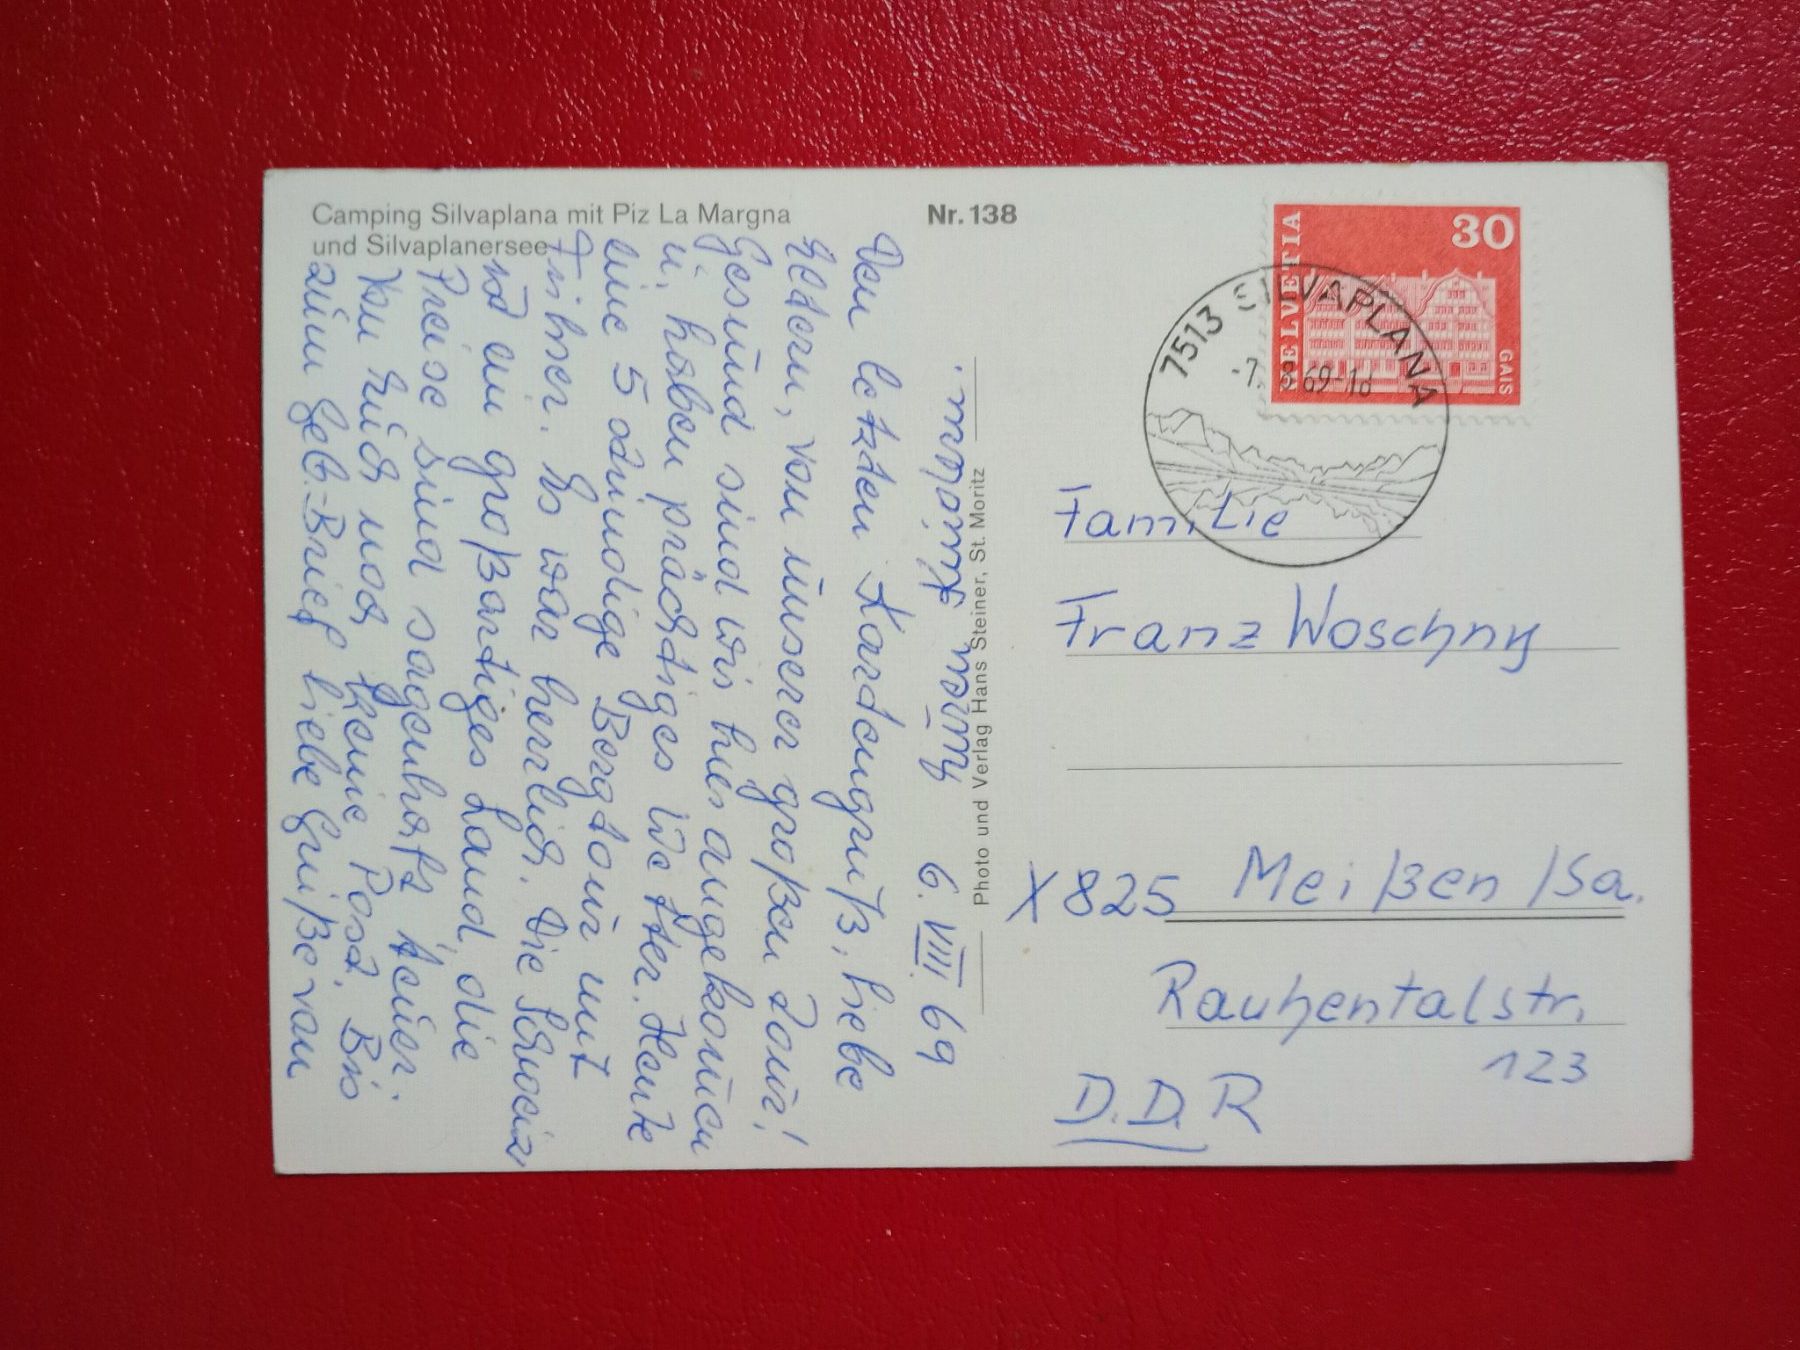 Camping Silvaplana mit Piz La Margna
und Silvaplanersee
Nr. 138
HELVETIA
30
GAIS
7513 SILVAPLANA
-7. 8. 69-18
6. VIII. 69
Den letzten Kartengruß, liebe
Eltern, von unserer großen Tour!
Gesund sind wir hier angekommen
u. haben prächtiges Wetter. Heute
eine 5 stündige Bergtour mit
hier. Es war herrlich. Die Schweiz
ist ein großartiges Land, die
Preise sind sagenhaft teuer.
Von Euch noch keine Post. Bis
zum Geb.-Brief liebe Grüße von
Euren Kindern.
Photo und Verlag Hans Steiner, St. Moritz
Familie
Franz Woschny
X825 Meißen /Sa.
Rauhentalstr.
123
D.D.R